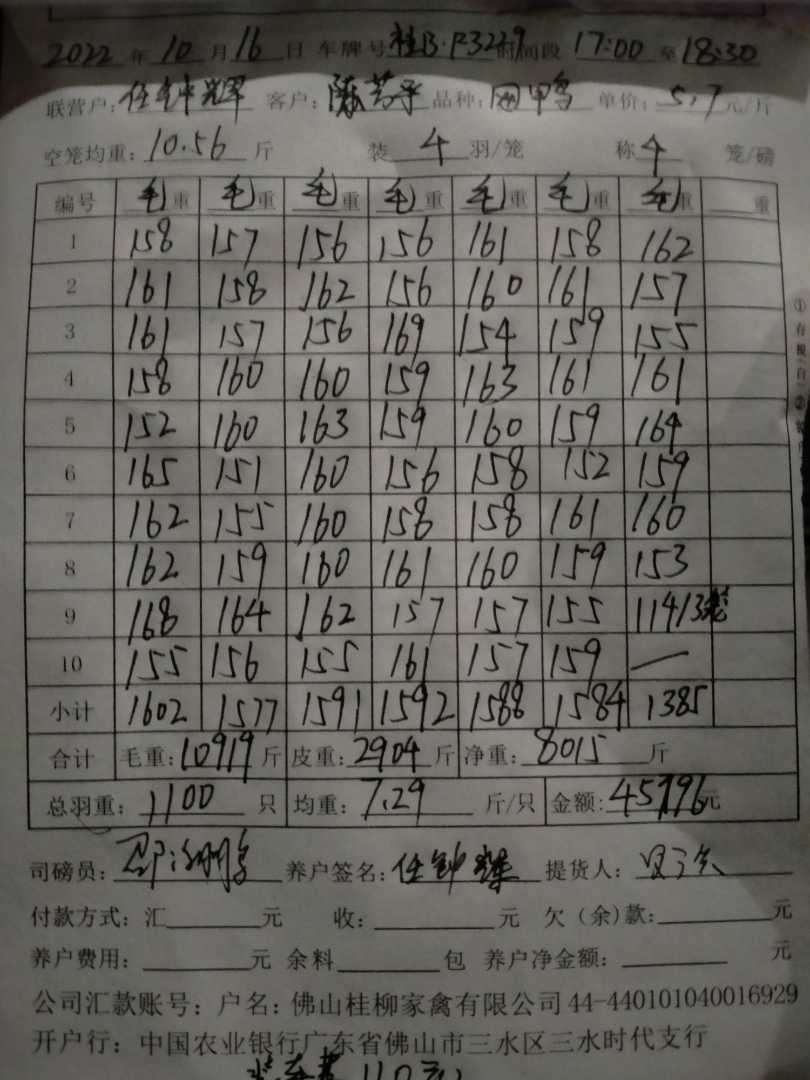 2022 年 10 月 16 日 车牌号 桂B·F3229 时间段 17:00 至 18:30
联营户: 任钟辉 客户: 品种: 鸭 单价: 5.7 元/斤
空笼均重: 10.56 斤 装 4 羽/笼 称 4 笼/磅
编号 毛重 毛重 毛重 毛重 毛重 毛重 毛重 重
1 158 157 156 156 161 158 162
2 161 158 162 156 160 161 157
3 161 157 156 169 154 159 155
4 158 160 160 159 163 161 161
5 152 160 163 159 160 159 164
6 165 151 160 156 158 152 159
7 162 155 160 158 158 161 160
8 162 159 160 161 160 159 153
9 168 164 162 157 157 155 114/3笼
10 155 156 155 161 157 159 —
小计 1602 1577 1591 1592 1588 1584 1385
合计 毛重: 10919 斤 皮重: 2904 斤 净重: 8015 斤
总羽重: 1100 只 均重: 7.29 斤/只 金额: 45796 元
司磅员: 养户签名: 任钟辉 提货人:
付款方式: 汇 元 收: 元 欠(余)款: 元
养户费用: 元 余料 包 养户净金额: 元
公司汇款账号: 户名: 佛山桂柳家禽有限公司 44-440101040016929
开户行: 中国农业银行广东省佛山市三水区三水时代支行
装车费 110元